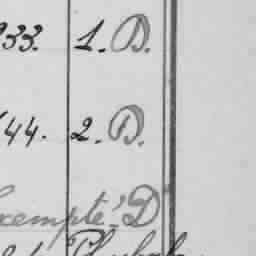 33. 1. D.
44. 2. D.
exempté. D